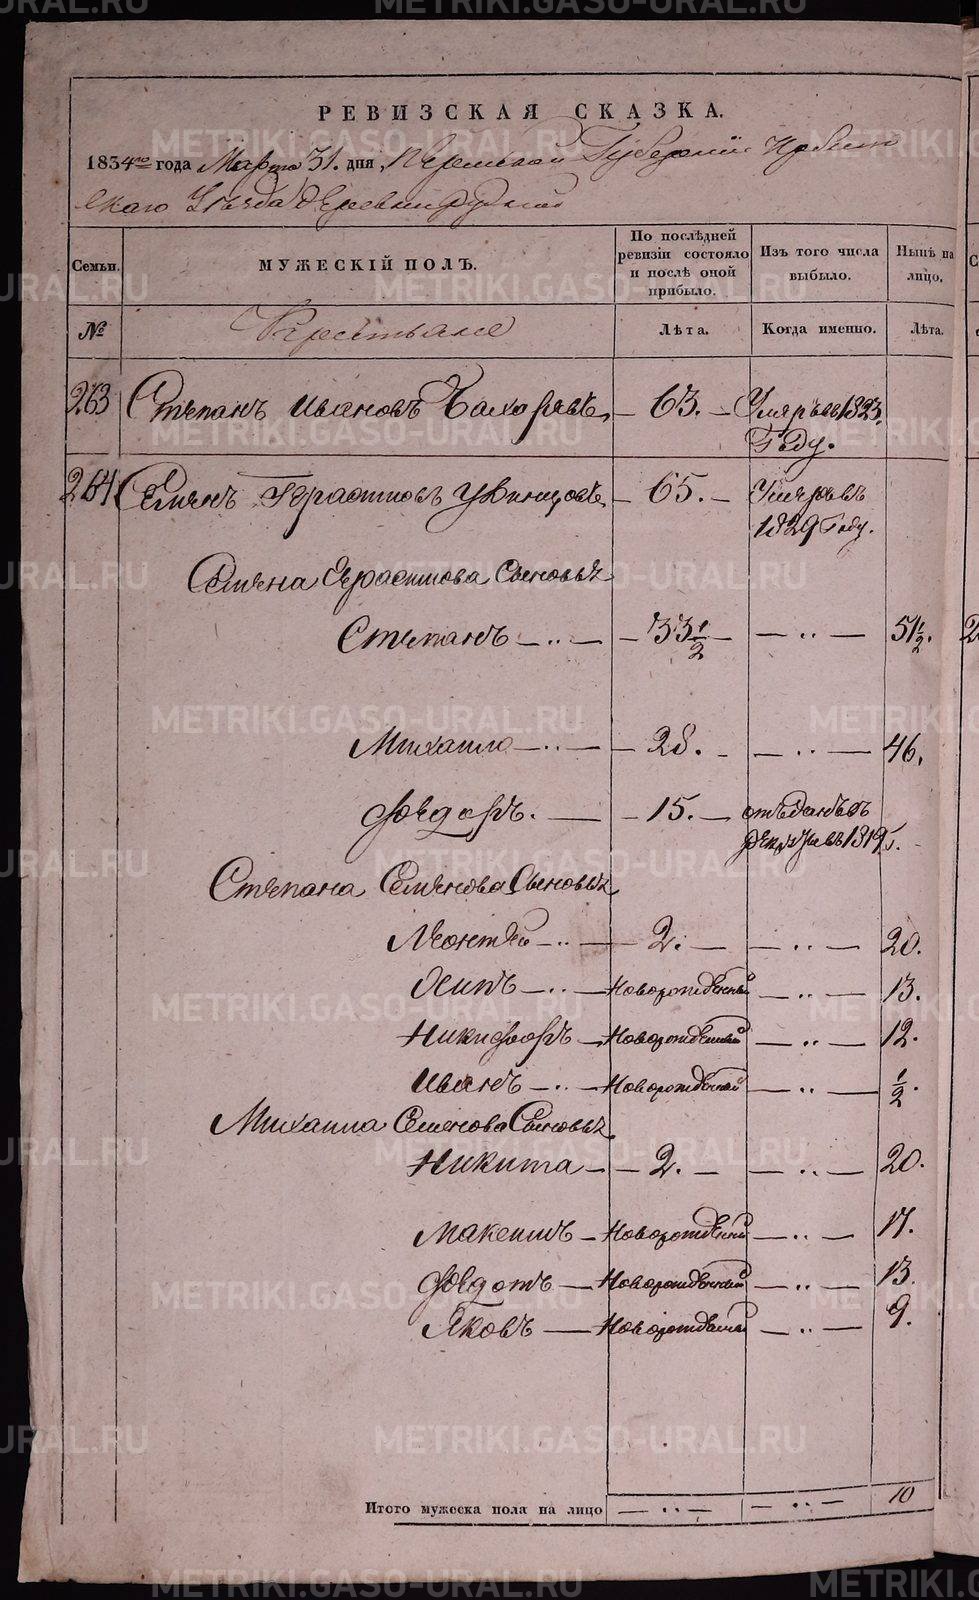 РЕВИЗСКАЯ СКАЗКА.
1834го года Марта 31. дня, Пермской Губернiи Ирбит
скаго Уѣзда деревни Рудной
Семьи.
МУЖЕСКІЙ ПОЛЪ.
По послѣдней ревизіи состояло и послѣ оной прибыло.
Изъ того числа выбыло.
Нынѣ на лицо.
№
Крестьяне
Лѣта.
Когда именно.
Лѣта.
263 Степанъ Ивановъ — 63. — Умеръ въ 1823.
Году.
264 Семенъ Герасимовъ — 65. — Умеръ въ
1829 Году.
Семена Герасимова Сыновья
Степанъ — „ — — 33 1/2 — — „ — 51 1/2.
Михаило — „ — — 28. — — „ — 46.
Федоръ. — — 15. — отъданъ въ
рекруты въ 1819 г.
Степана Семенова Сыновья
Леонтей — „ — — 2. — — „ — 20.
Осипъ — „ — Новорожденный — „ — 13.
Никифоръ — Новорожденный — „ — 12.
Иванъ — „ — Новорожденный — „ — 1/2.
Михаила Семенова Сыновья
Никита — — 2. — — „ — 20.
Макеимъ — Новорожденный — „ — 17.
Федотъ — Новорожденный — „ — 13.
Яковъ — Новорожденный — „ — 9.
Итого мужеска пола на лицо — „ — — „ — 10
METRIKI.GASO-URAL.RU